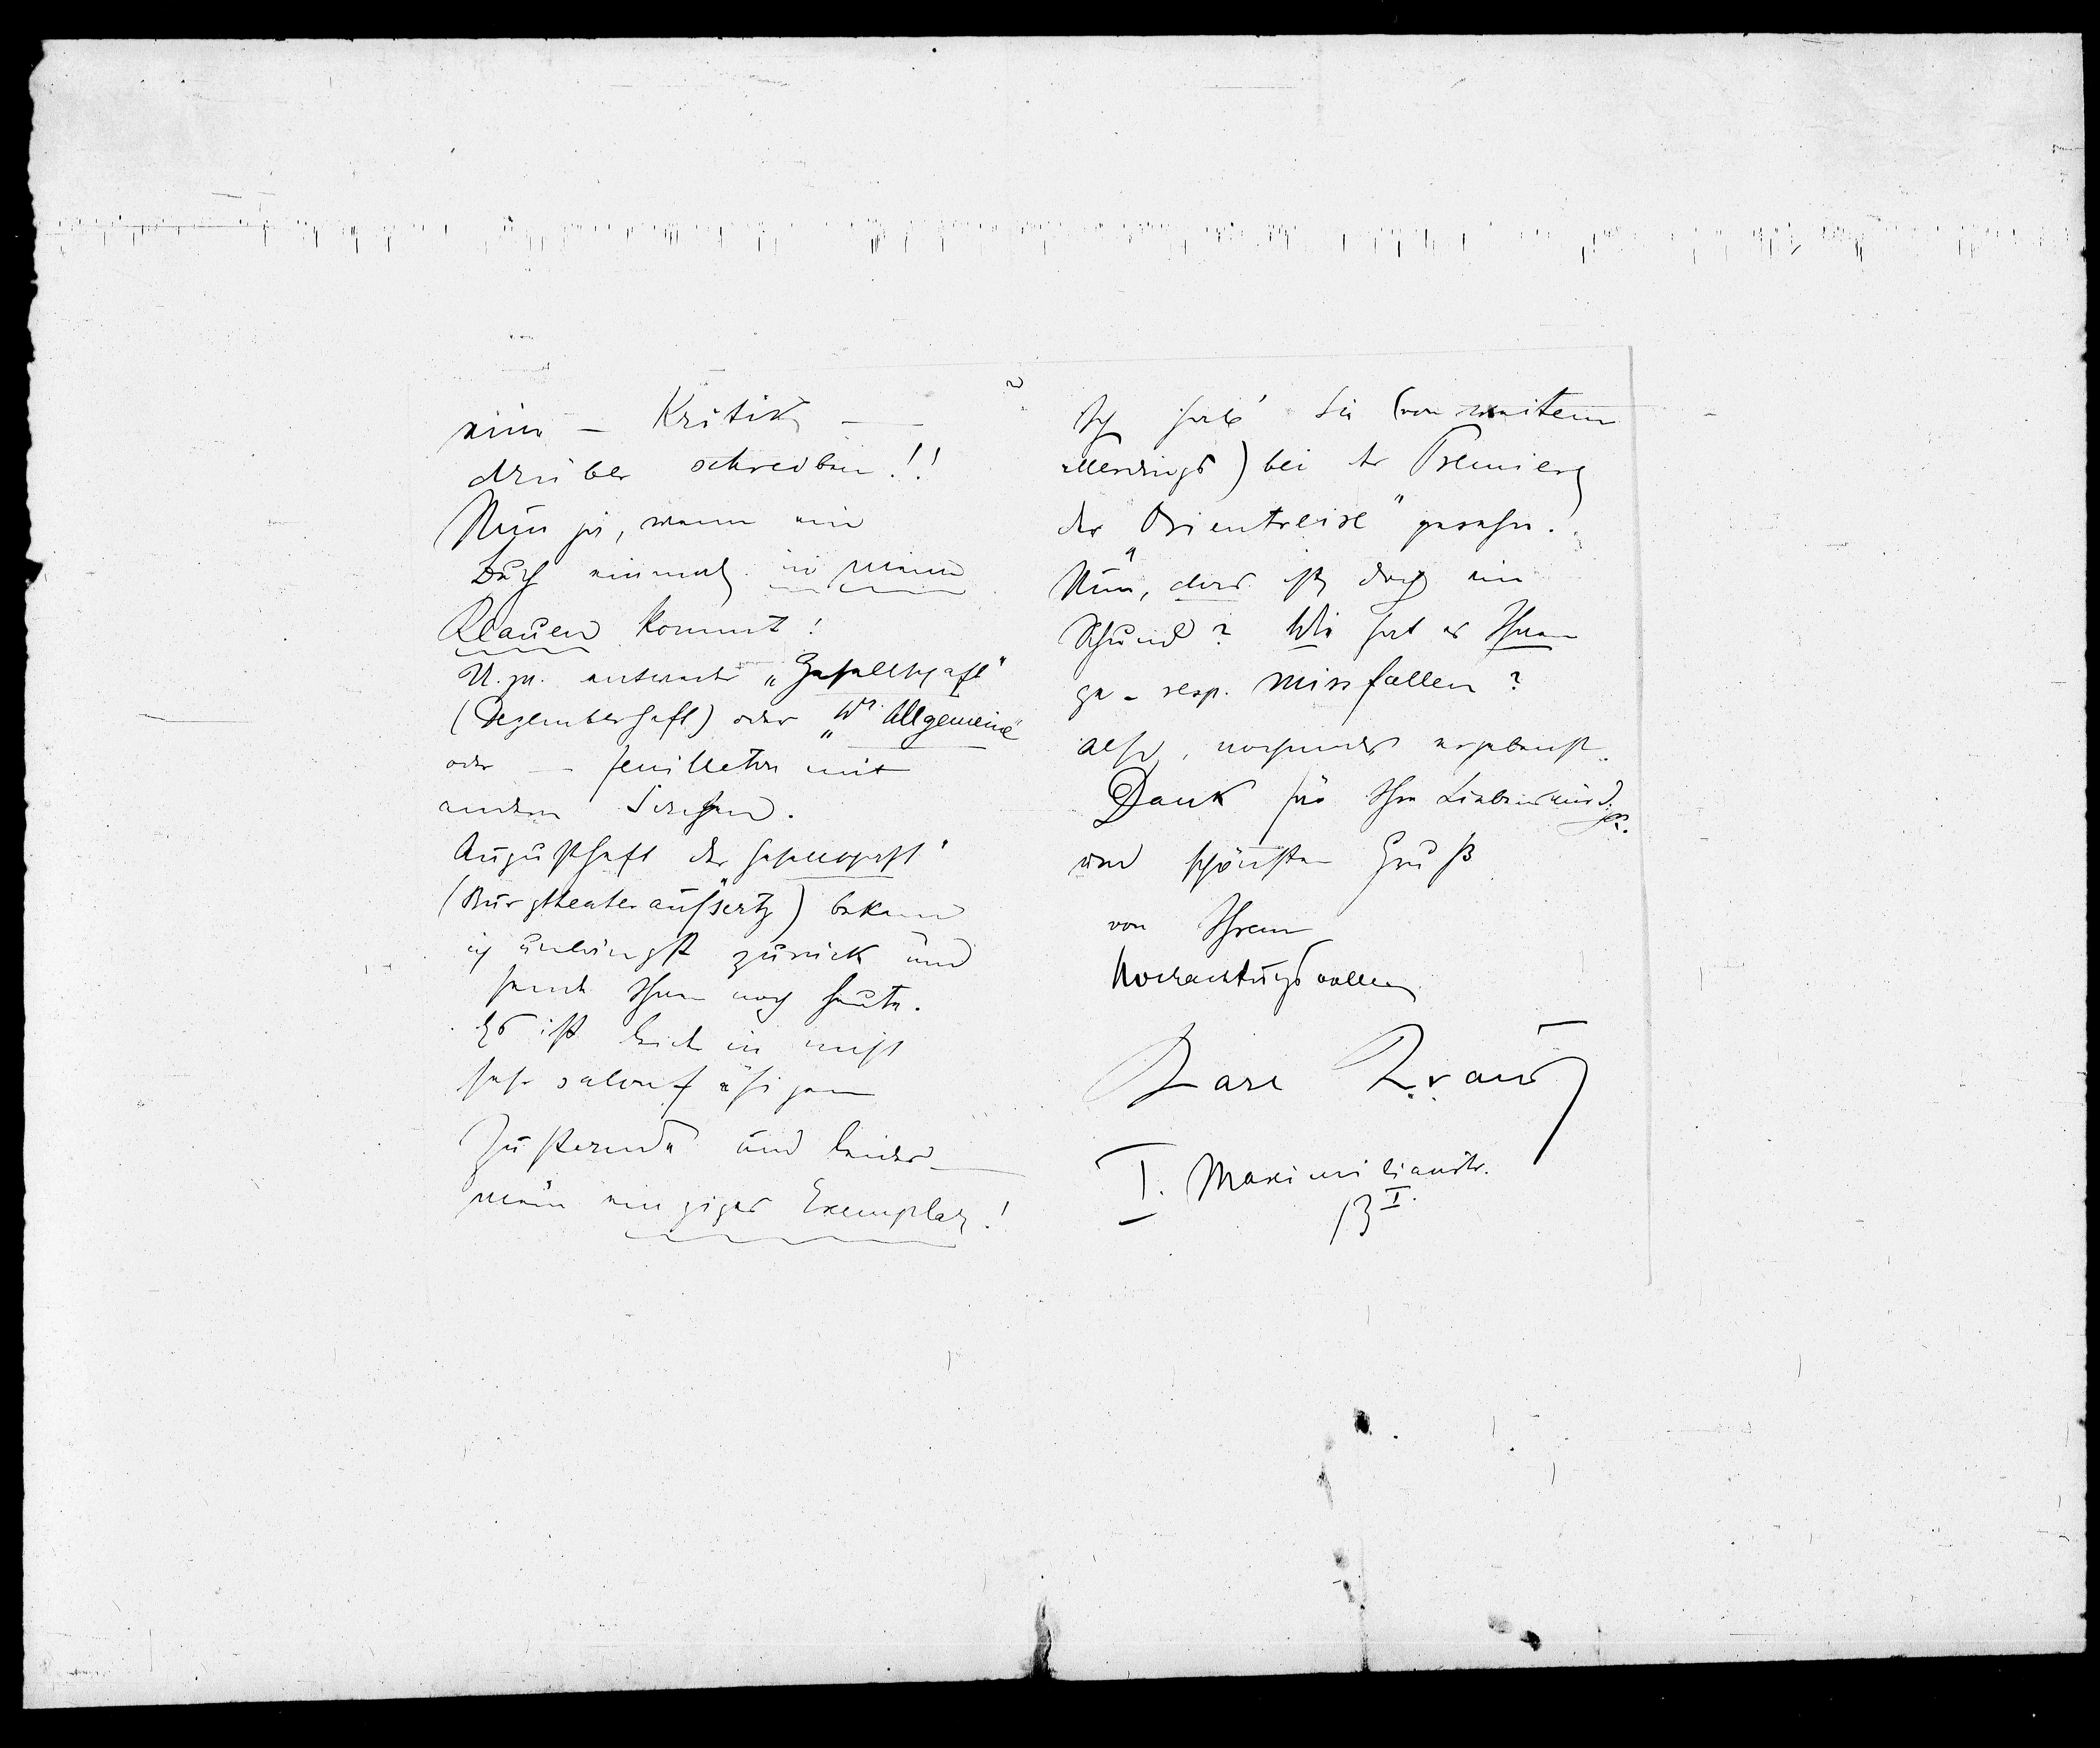 eine – Kritik –
drüber schreiben!!
Nun ja, wenn ein
Buch einmal in meine
Klauen kommt!
U. zw. entweder „Gesellschaft“
(Dezemberheft) oder „Wr. Allgemeine“
oder – feuilleton mit
andern Sachen.
Augustheft der „Gesellschaft“
(Burgtheateraufsatz) bekam
ich unlängst zurück und
sende Ihnen noch heute.
Es ist leider in nicht
sehr salonfähigem
Zustande und leider
mein einziges Exemplar!
Ich hab' Sie (von weitem
allerdings) bei der Premiere
der „Orientreise“ gesehn!
Nun, das ist doch ein
Schund? Wie hat es Ihnen
ge- resp. missfallen?
Also, nochmals ergebenst.
Dank für Ihre Liebenswürdigk.
und schönsten Gruß
von Ihrem
hochachtungsvollen
Karl Kraus
I. Maximilianstr.
13 I.